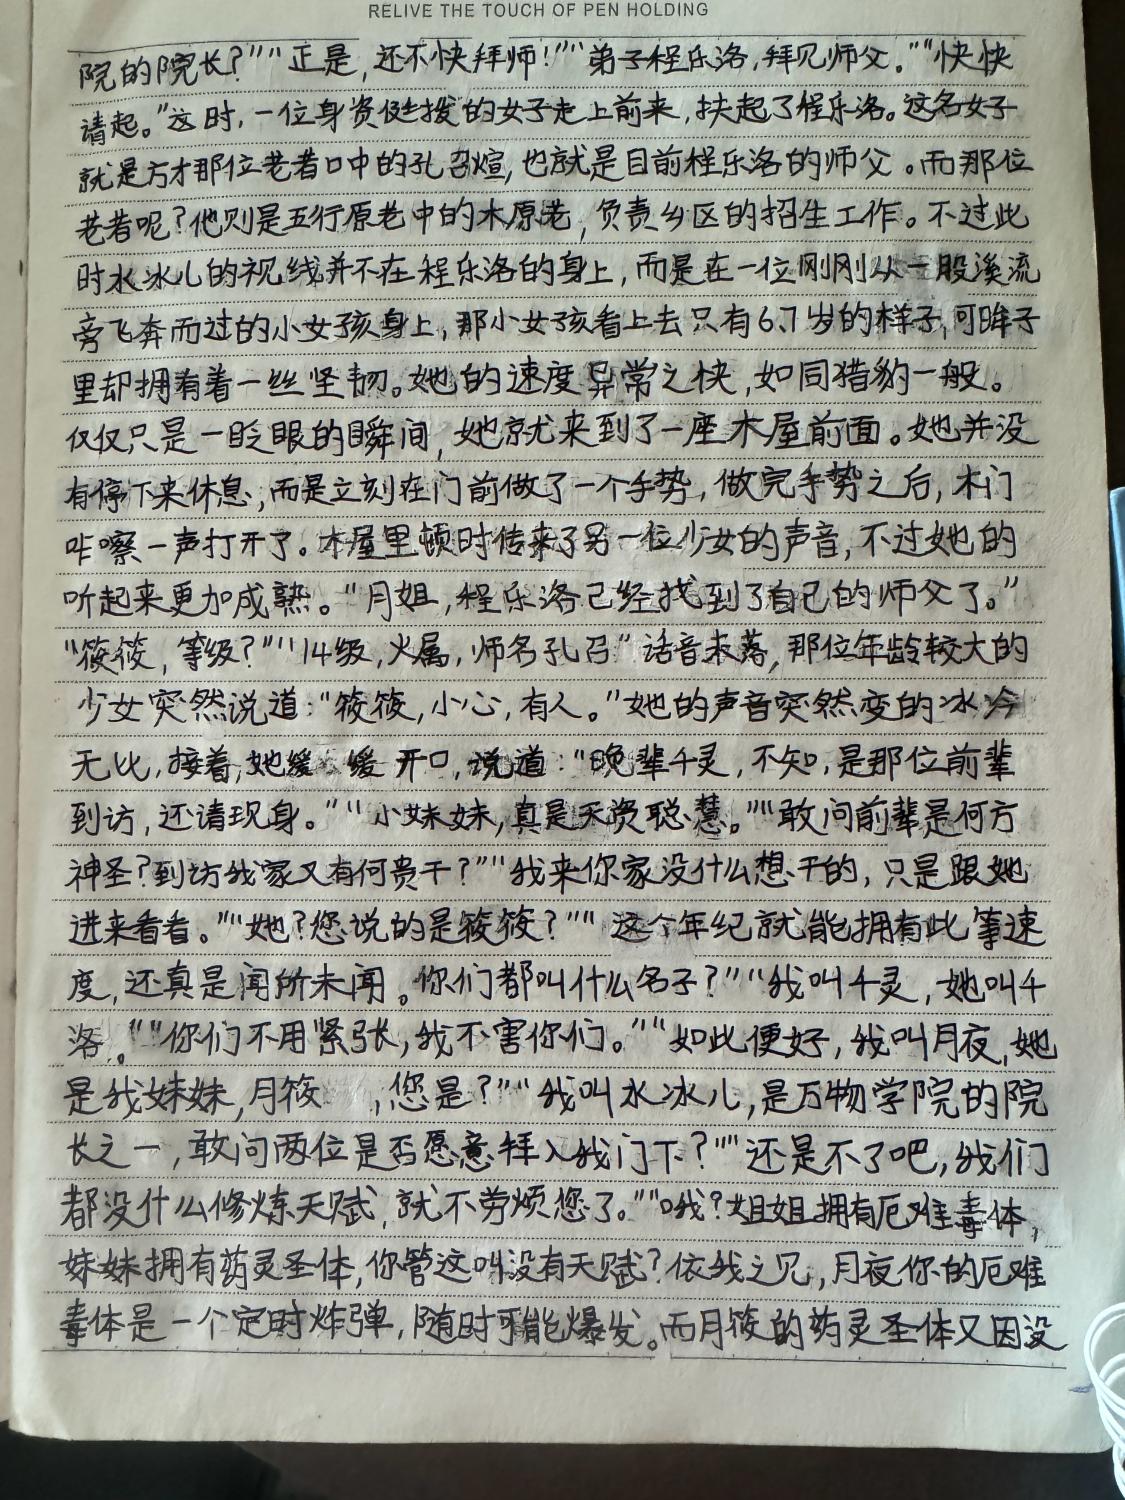 RELIVE THE TOUCH OF PEN HOLDING
院的院长？”“正是，还不快拜师！”“弟子程乐洛，拜见师父。”“快快
请起。”这时，一位身资挺拔的女子走上前来，扶起了程乐洛。这名女子
就是方才那位老者口中的孔召煊，也就是目前程乐洛的师父。而那位
老者呢？他则是五行原老中的木原老，负责乡区的招生工作。不过此
时水冰儿的视线并不在程乐洛的身上，而是在一位刚刚从一股溪流
旁飞奔而过的小女孩身上，那小女孩看上去只有6、7岁的样子，可眸子
里却拥有着一丝坚韧。她的速度异常之快，如同猎豹一般。
仅仅只是一眨眼的瞬间，她就来到了一座木屋前面。她并没
有停下来休息，而是立刻在门前做了一个手势，做完手势之后，木门
咔嚓一声打开了。木屋里顿时传来了另一位少女的声音，不过她的
听起来更加成熟。“月姐，程乐洛已经找到了自己的师父了。”
“筱筱，等级？”“14级，火属，师名孔召”话音未落，那位年龄较大的
少女突然说道：“筱筱，小心，有人。”她的声音突然变的冰冷
无比，接着，她缓缓开口，说道：“晚辈千灵，不知，是那位前辈
到访，还请现身。”“小妹妹，真是天资聪慧。”“敢问前辈是何方
神圣？到访我家又有何贵干？”“我来你家没什么想干的，只是跟她
进来看看。”“她？您说的是筱筱？”“这个年纪就能拥有此等速
度，还真是闻所未闻。你们都叫什么名子？”“我叫千灵，她叫千
洛。”“你们不用紧张，我不害你们。”“如此便好，我叫月夜，她
是我妹妹，月筱，您是？”“我叫水冰儿，是万物学院的院
长之一，敢问两位是否愿意拜入我门下？”“还是不了吧，我们
都没什么修炼天赋，就不劳烦您了。”“哦？姐姐拥有厄难毒体，
妹妹拥有药灵圣体，你管这叫没有天赋？依我之见，月夜你的厄难
毒体是一个定时炸弹，随时可能爆发。而月筱的药灵圣体又因没